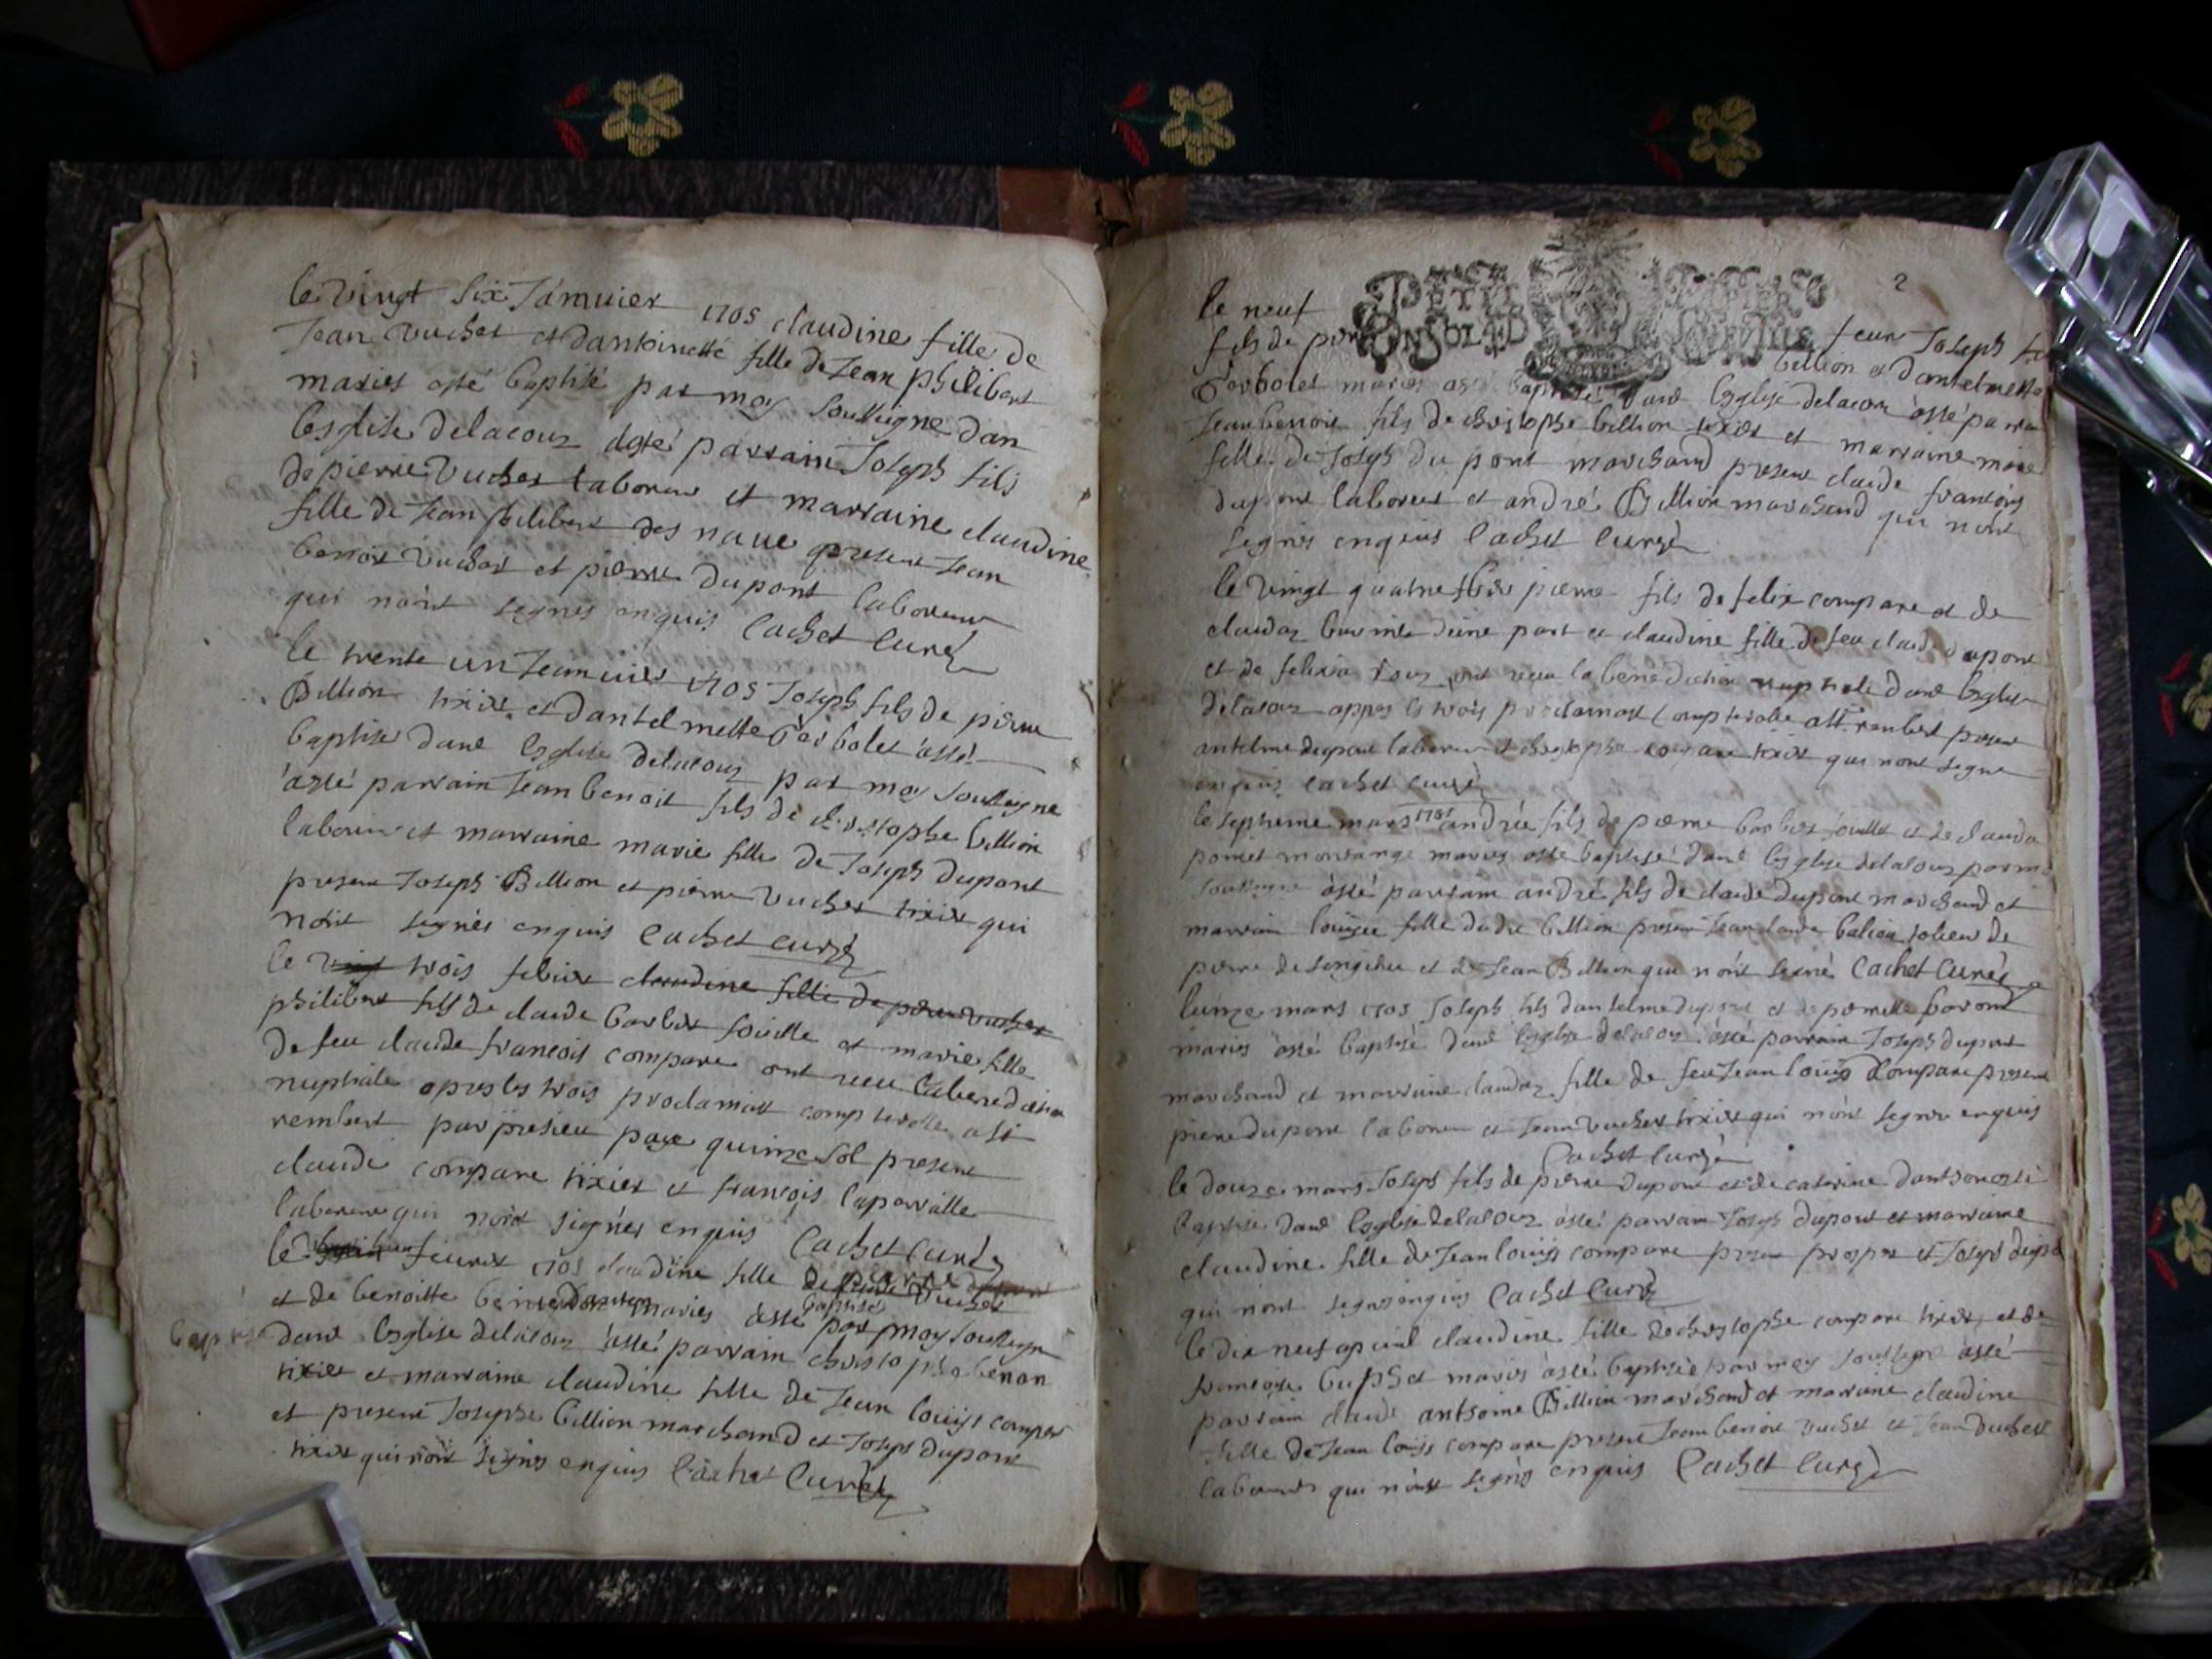 le vingt six Januier 1705 claudine fille de
Jean vucher et dantoinette fille de Jean philibert
maries asté baptisé par moy soussigne dan
lesglise delacour asté parrain Joseph fils
de pierre vucher laboreur et marraine claudine
fille de Jean philibert des naue present Jean
benoit vucher et pierre dupont laboreur
qui nont segnes enquis Cachet Curé
le trente un Jeanuier 1705 Joseph fils de pierre
Billion tixier et dantelmette Borbolet asté
baptise dans lesglise delacour par moy soussigne
asté parrain Jean benoit fils de christophe billion
laboreur et marraine marie fille de Joseph dupont
present Joseph Billion et pierre vucher tixier qui
nont segnés enquis Cachet Curé
le vingt trois febier claudine fille de pierre vucher
philibert fils de claude barbier et marie fille
de feu claude francois compare ont receu la benediction
nuptiale apres les trois proclamat
rembert par presieu paye quinze sol present
claude compare tixier et françois laperralle
laboreur qui nont signés enquis Cachet Curé
le feurier 1705 claudine fille de pierre vucher
et de benoitte maries asté baptisé par moy soussigne
baptisé dans lesglise delacour asté parrain christophe benon
tixier et marraine claudine fille de Jean louijs compare
et present Josephe billion marchand et Joseph dupont
tixier qui nont signes enquis Cachet Curé
2
PETIT PAPIER
le neuf feur Joseph
fils de pierre billion et dantelmette
Borbolet maries asté baptisé dans lesglise delacour asté parrain
Jean benoit fils de christophe billion tixier et marraine marie
fille de Joseph du pont marchand present claude francois
dupont laboreur et andré Billion marchand qui nont
segnés enquis Cachet Curé
le vingt quatre pierre fils de felix compare et de
claudaz dune part et claudine fille de feu claude dupont
et de felixia ont receu la benediction nuptiale dans lesglise
delacour appres les trois proclamat rembert present
antelme dupont laboreur et christophe compare tixier qui nont segne
enquis Cachet Curé
le septieme mars 1705 andrée fils de pierre barbier et de clauda
poncet montange maries asté baptisé dans lesglise delacour par mo
soussigne asté parrain andré fils de claude dupont marchand et
marrain louijse fille billion present Jean claude de
pierre de longchu et de Jean Billion qui nont segné Cachet Curé
lunze mars 1705 Joseph fils dantelme dupont et de pernette
maries asté baptisé dans lesglise delacour asté parrain Joseph dupont
marchand et marraine claudaz fille de feu Jean louijs Compare present
pierre dupont laboreur et Jean vucher tixier qui nont segner enquis
Cachet Curé
le douze mars Joseph fils de pierre dupont et de caterine
baptise dans lesglise delacour asté parrain Joseph dupont et marraine
claudine fille de Jean louijs compare present prosper et Joseph dupo
qui nont segnes enquis Cachet Curé
le dix neuf apuril claudine fille de christophe compare tixier et de
francoise maries asté baptisée par moy soussigne asté
parrain claude antsoine Billion marchand et marraine claudine
fille de Jean louijs compare present Jean benoit vucher et Jean vucher
laboureur qui nont segnés enquis Cachet Curé